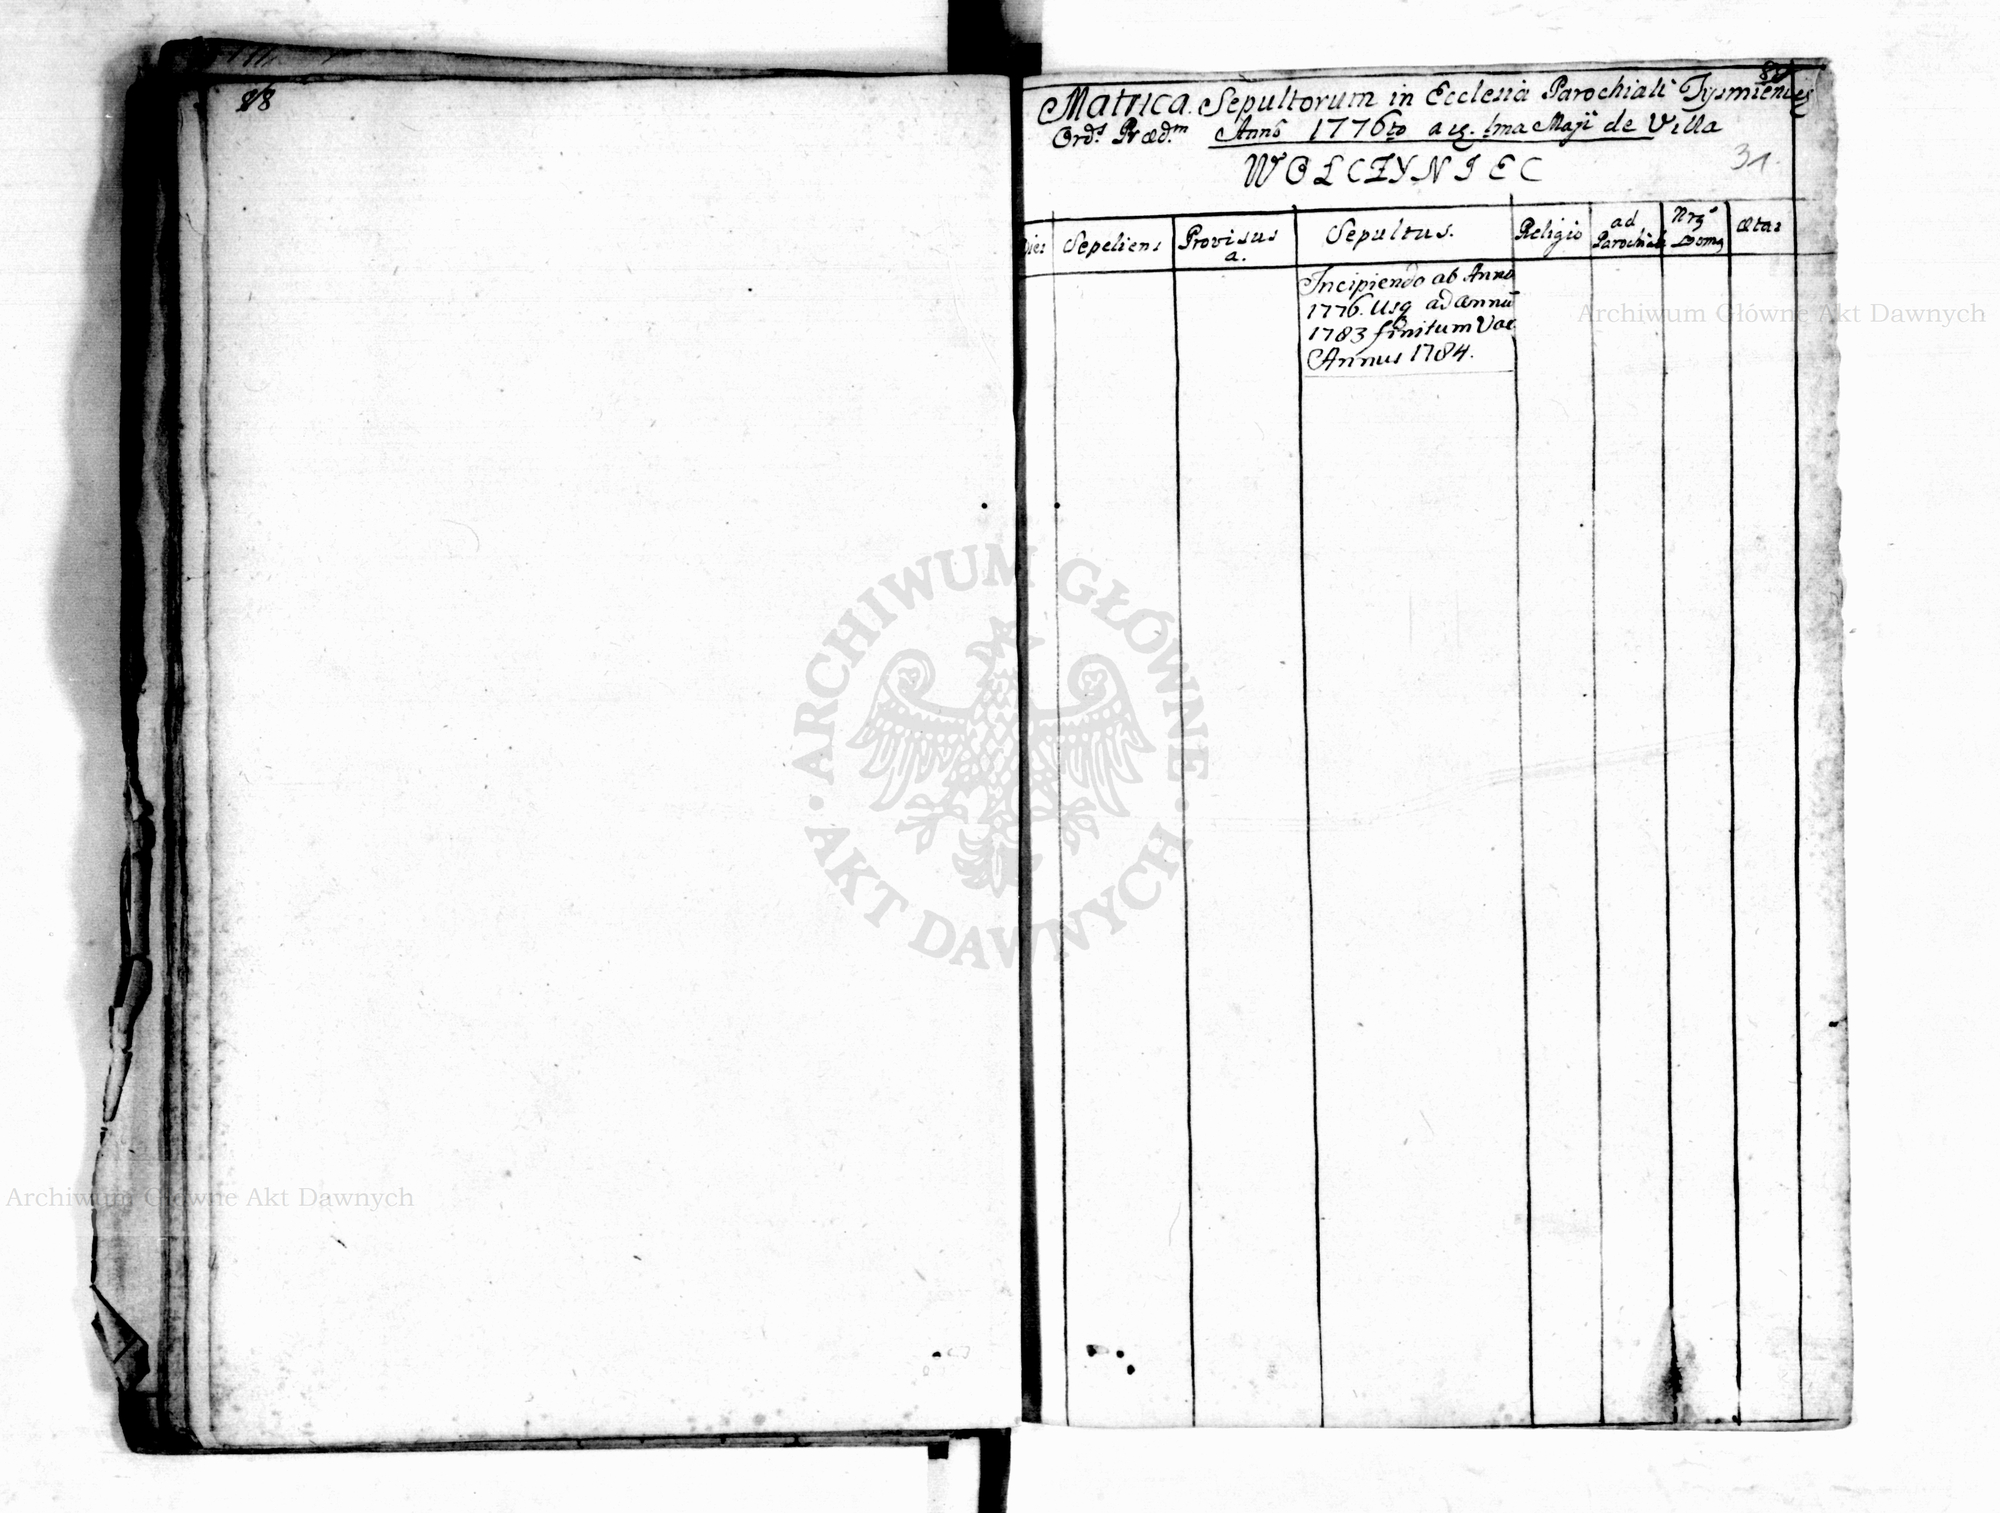 88
89
Matrica Sepultorum in Ecclesia Parochiali Tysmienices
Ord.s Præd.m Anno 1776to a 1ma Maji de Villa
WOLCZYNIEC
31.
Dies Sepeliens Provisus a. Sepultus. Religio ad Parochiale Nrq Domq Ætas
Incipiendo ab Anno
1776. Usq ad Annū
1783 finitum Vae
Annus 1784.
Archiwum Główne Akt Dawnych
ARCHIWUM GŁÓWNE AKT DAWNYCH
Archiwum Główne Akt Dawnych